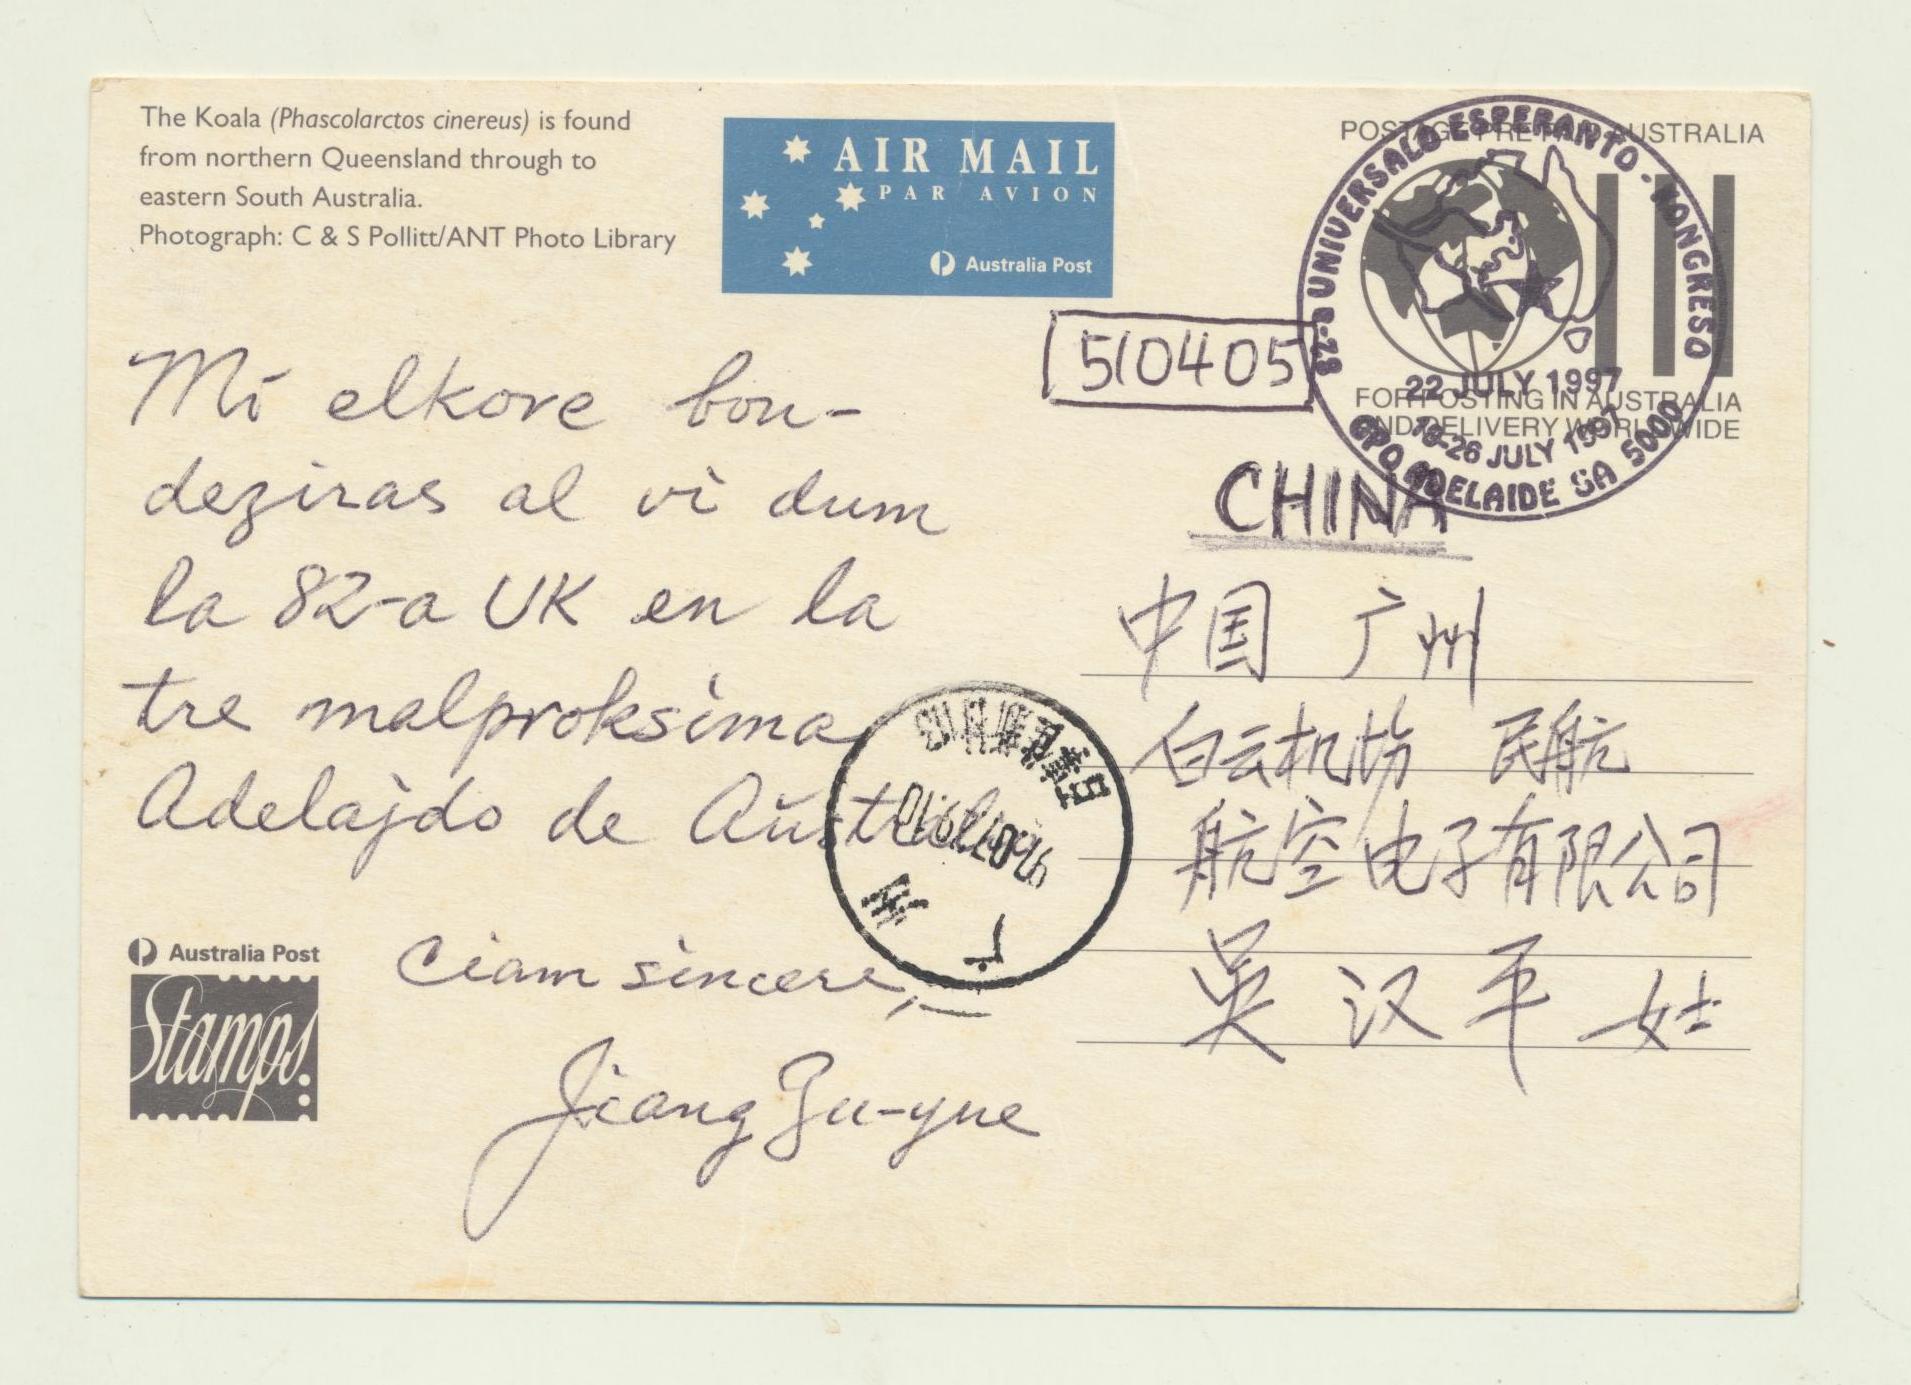 The Koala (Phascolarctos cinereus) is found
from northern Queensland through to
eastern South Australia.
Photograph: C & S Pollitt/ANT Photo Library
AIR MAIL
PAR AVION
Australia Post
POSTAGE PREPAID AUSTRALIA
FOR POSTING IN AUSTRALIA
AND DELIVERY WORLDWIDE
82-a UNIVERSALO ESPERANTO-KONGRESO
22 JULY 1997
19-26 JULY 1997
GPO ADELAIDE SA 5000
510405
CHINA
Mi elkore bon-
deziras al vi dum
la 82-a UK en la
tre malproksima
Adelajdo de Aŭstralio
Ciam sincere,
Jiang Zu-yue
中国 广州
白云机场 民航
航空电子有限公司
吴汉平 女士
广州
Australia Post
Stamps